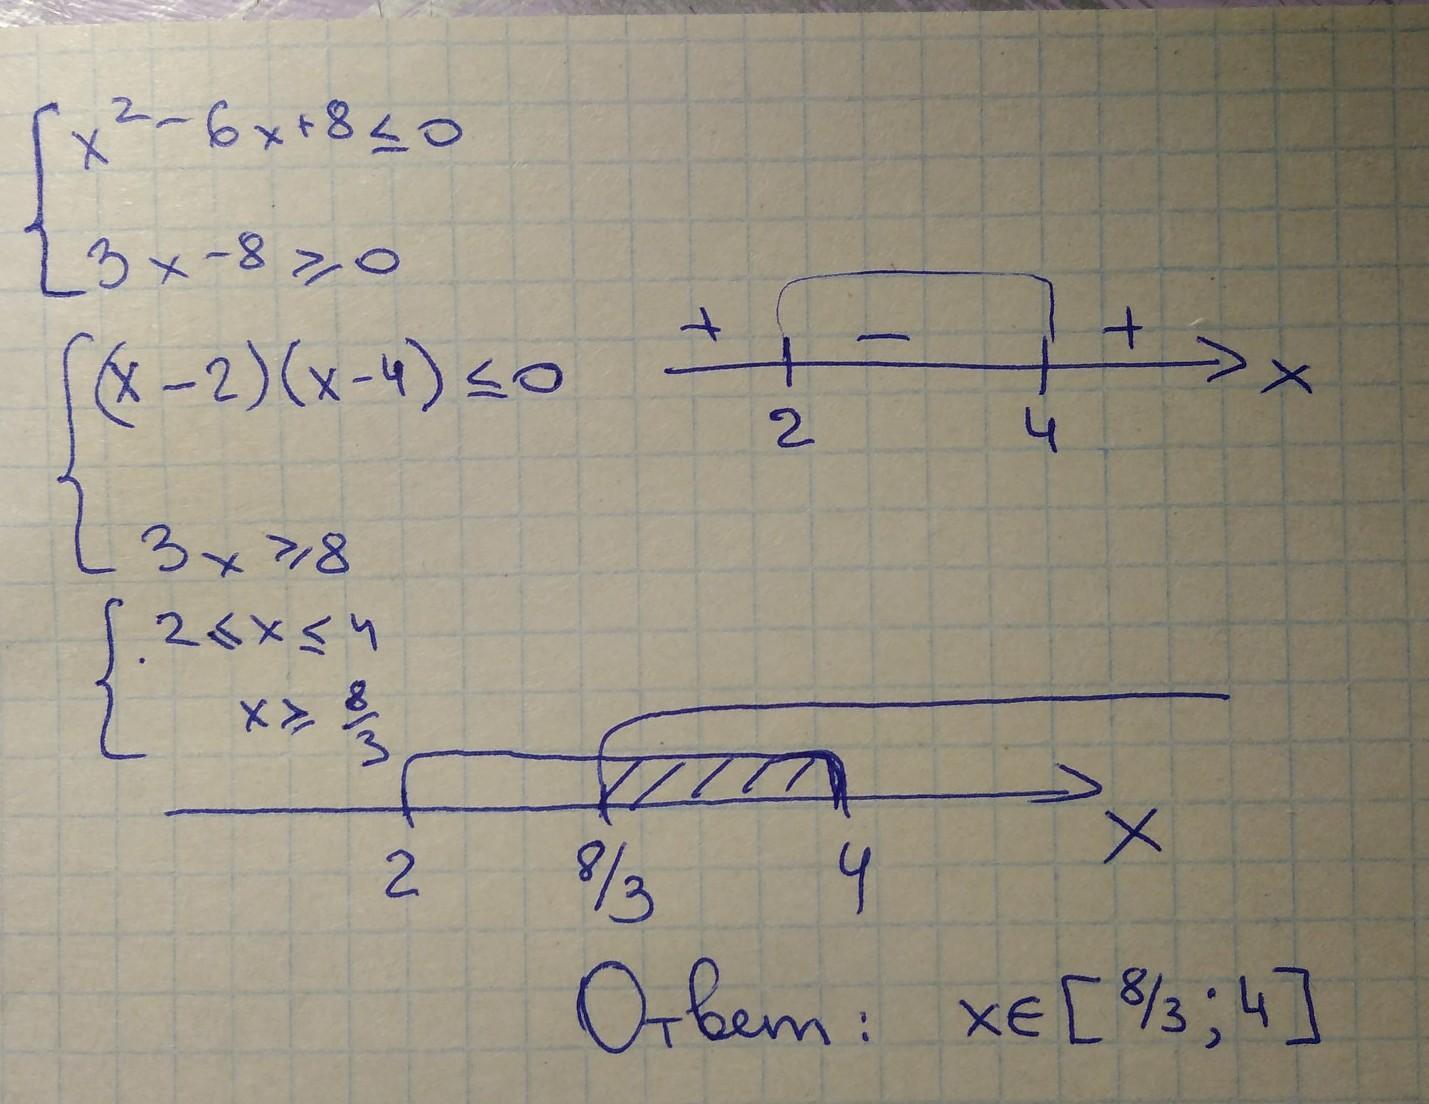 x² - 6x + 8 ≤ 0
3x - 8 ≥ 0
(x - 2)(x - 4) ≤ 0
+ − + x
2 4
3x ≥ 8
2 ≤ x ≤ 4
x ≥ 8/3
2 8/3 4 x
Ответ: x∈[8/3; 4]